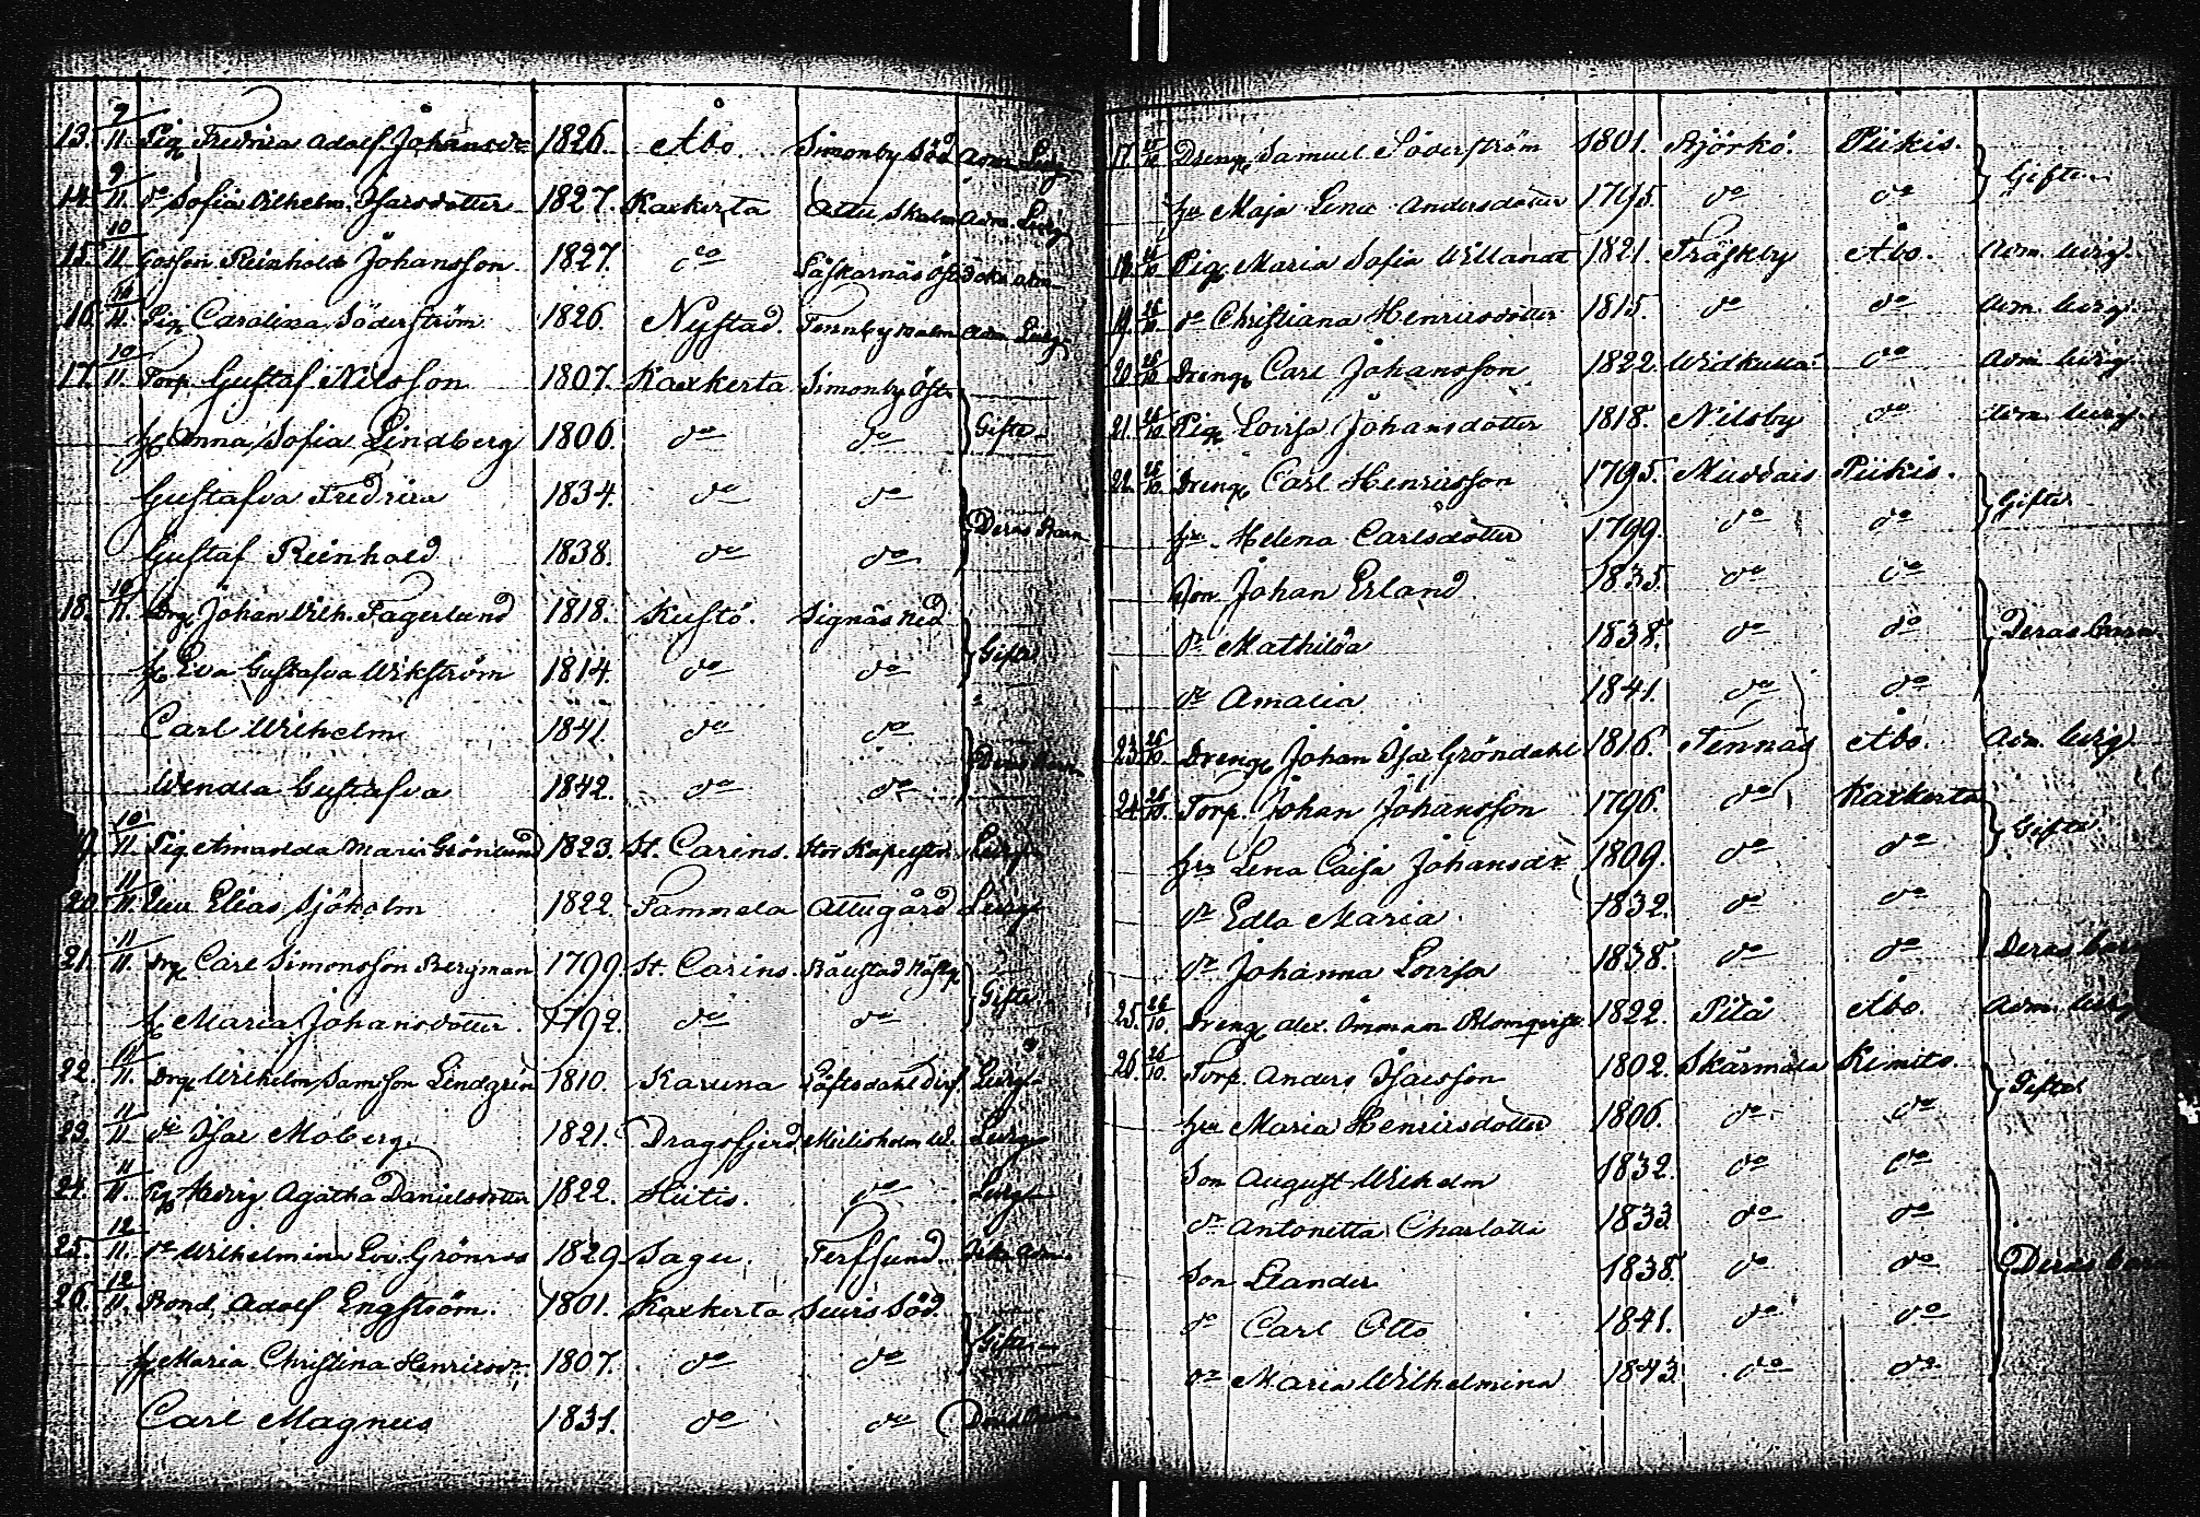 13. 9/11 Pig Fredrica Adolf. Johansdr 1826. Åbo. Simonby Söd Adm. Ledig
14. 9/11 do Sofia Vilhelm. Isacsdotter 1827. Kaxkerta Attu, Skalm Adm. Ledig
15. 10/11 Gossen Reinhold Johansson 1827. do Läskarnäs Öfre Icke adm
16. 10/11 Pig Carolina Söderström 1826. Nystad. Tennby Malm Adm Ledig
17. 10/11 Torp. Gustaf Nilsson 1807. Kaxkerta Simonby Öst. 
h. Anna Sofia Lindberg 1806. do do Gifte
Gustafva Fredrica 1834. do do
Gustaf Reinhold 1838. do do Deras Barn
18. 10/11 Drg Johan Vilh. Fagerlund 1818. Kustö. Signäs Ned
h. Eva Gustafva Wikström 1814. do do Gifte
Carl Wilhelm 1841. do do
Wendla Gustafva 1842. do do Deras Barn
19. 10/11 Pig Amanda Maria Grönlund 1823. St. Carins. Stor Kapellstr. Ledig
20. 11/11 Elias Sjöholm 1822. Tammela Attugård Ledig
21. 11/11 Drg Carl Simonsson Bergman 1799. St. Carins.
h. Maria Johansdotter. 1792. do do Gifte
22. 11/11 Drg Wilhelm Samsson Lindgrén 1810. Karuna Ledig
23. 11/11 do Isac Moberg 1821. Dragsfjerd Ledig
24. 11/11 Pig Hedvig Agatha Danielsdotter 1822. Hiitis. do Ledig
25. 12/11 do Wilhelmina Lov. Grönroos 1829. Sagu. Terfsund. Icke Adm.
26. 12/11 Bond. Adolf Engström. 1801. Kaxkerta Seuris Söd.
h. Maria Christina Henricsdr. 1807. do do Gifte
Carl Magnus 1831. do do Deras Barn
17. Dreng Samuel Söderström 1801. Björkö. Piikis.
hu Maja Lena Andersdotter 1795. do do Gifte
18. 26/10 Pig Maria Sofia Willandt 1821. Träskby Åbo. Adm. ledig.
19. 26/10 do Christiana Henricsdotter 1815. do do Adm. ledig.
20. 26/10 Dreng Carl Johansson 1822. Widkulla do Adm ledig.
21. 26/10 Pig Lovisa Johansdotter 1818. Nilsby do Adm. ledig.
22. 26/10 Dreng Carl Henricsson 1795. Muddais Piikis.
hu. Helena Carlsdotter 1799. do do Gifte
Son Johan Erland 1835. do do
dr Mathilda 1838. do do Deras barn
dr Amalia 1841. do do
23. 26/10 Dreng Johan Isac Gröndahl 1816. Tennäs Åbo. Adm. ledig
24. 26/10 Torp. Johan Johansson 1796. do Kaxkerta
hu Lena Caisa Johansdr 1809. do do Gifte
dr Edla Maria 1832. do do
dr Johanna Lovisa 1838. do do Deras barn
25. 26/10 Dreng Alex. Ammam Blomqvist 1822. Pitå Åbo. Adm. ledig
26. 26/10 Torp. Anders Isacsson 1802. Skärmåla Kimito.
hu Maria Henricsdotter 1806. do do Gifta
Son August Wilhelm 1832. do do
dr Antonetta Charlotta 1833. do do
Son Leander 1838. do do Deras barn
do Carl Otto 1841. do do
dr Maria Wilhelmina 1843. do do